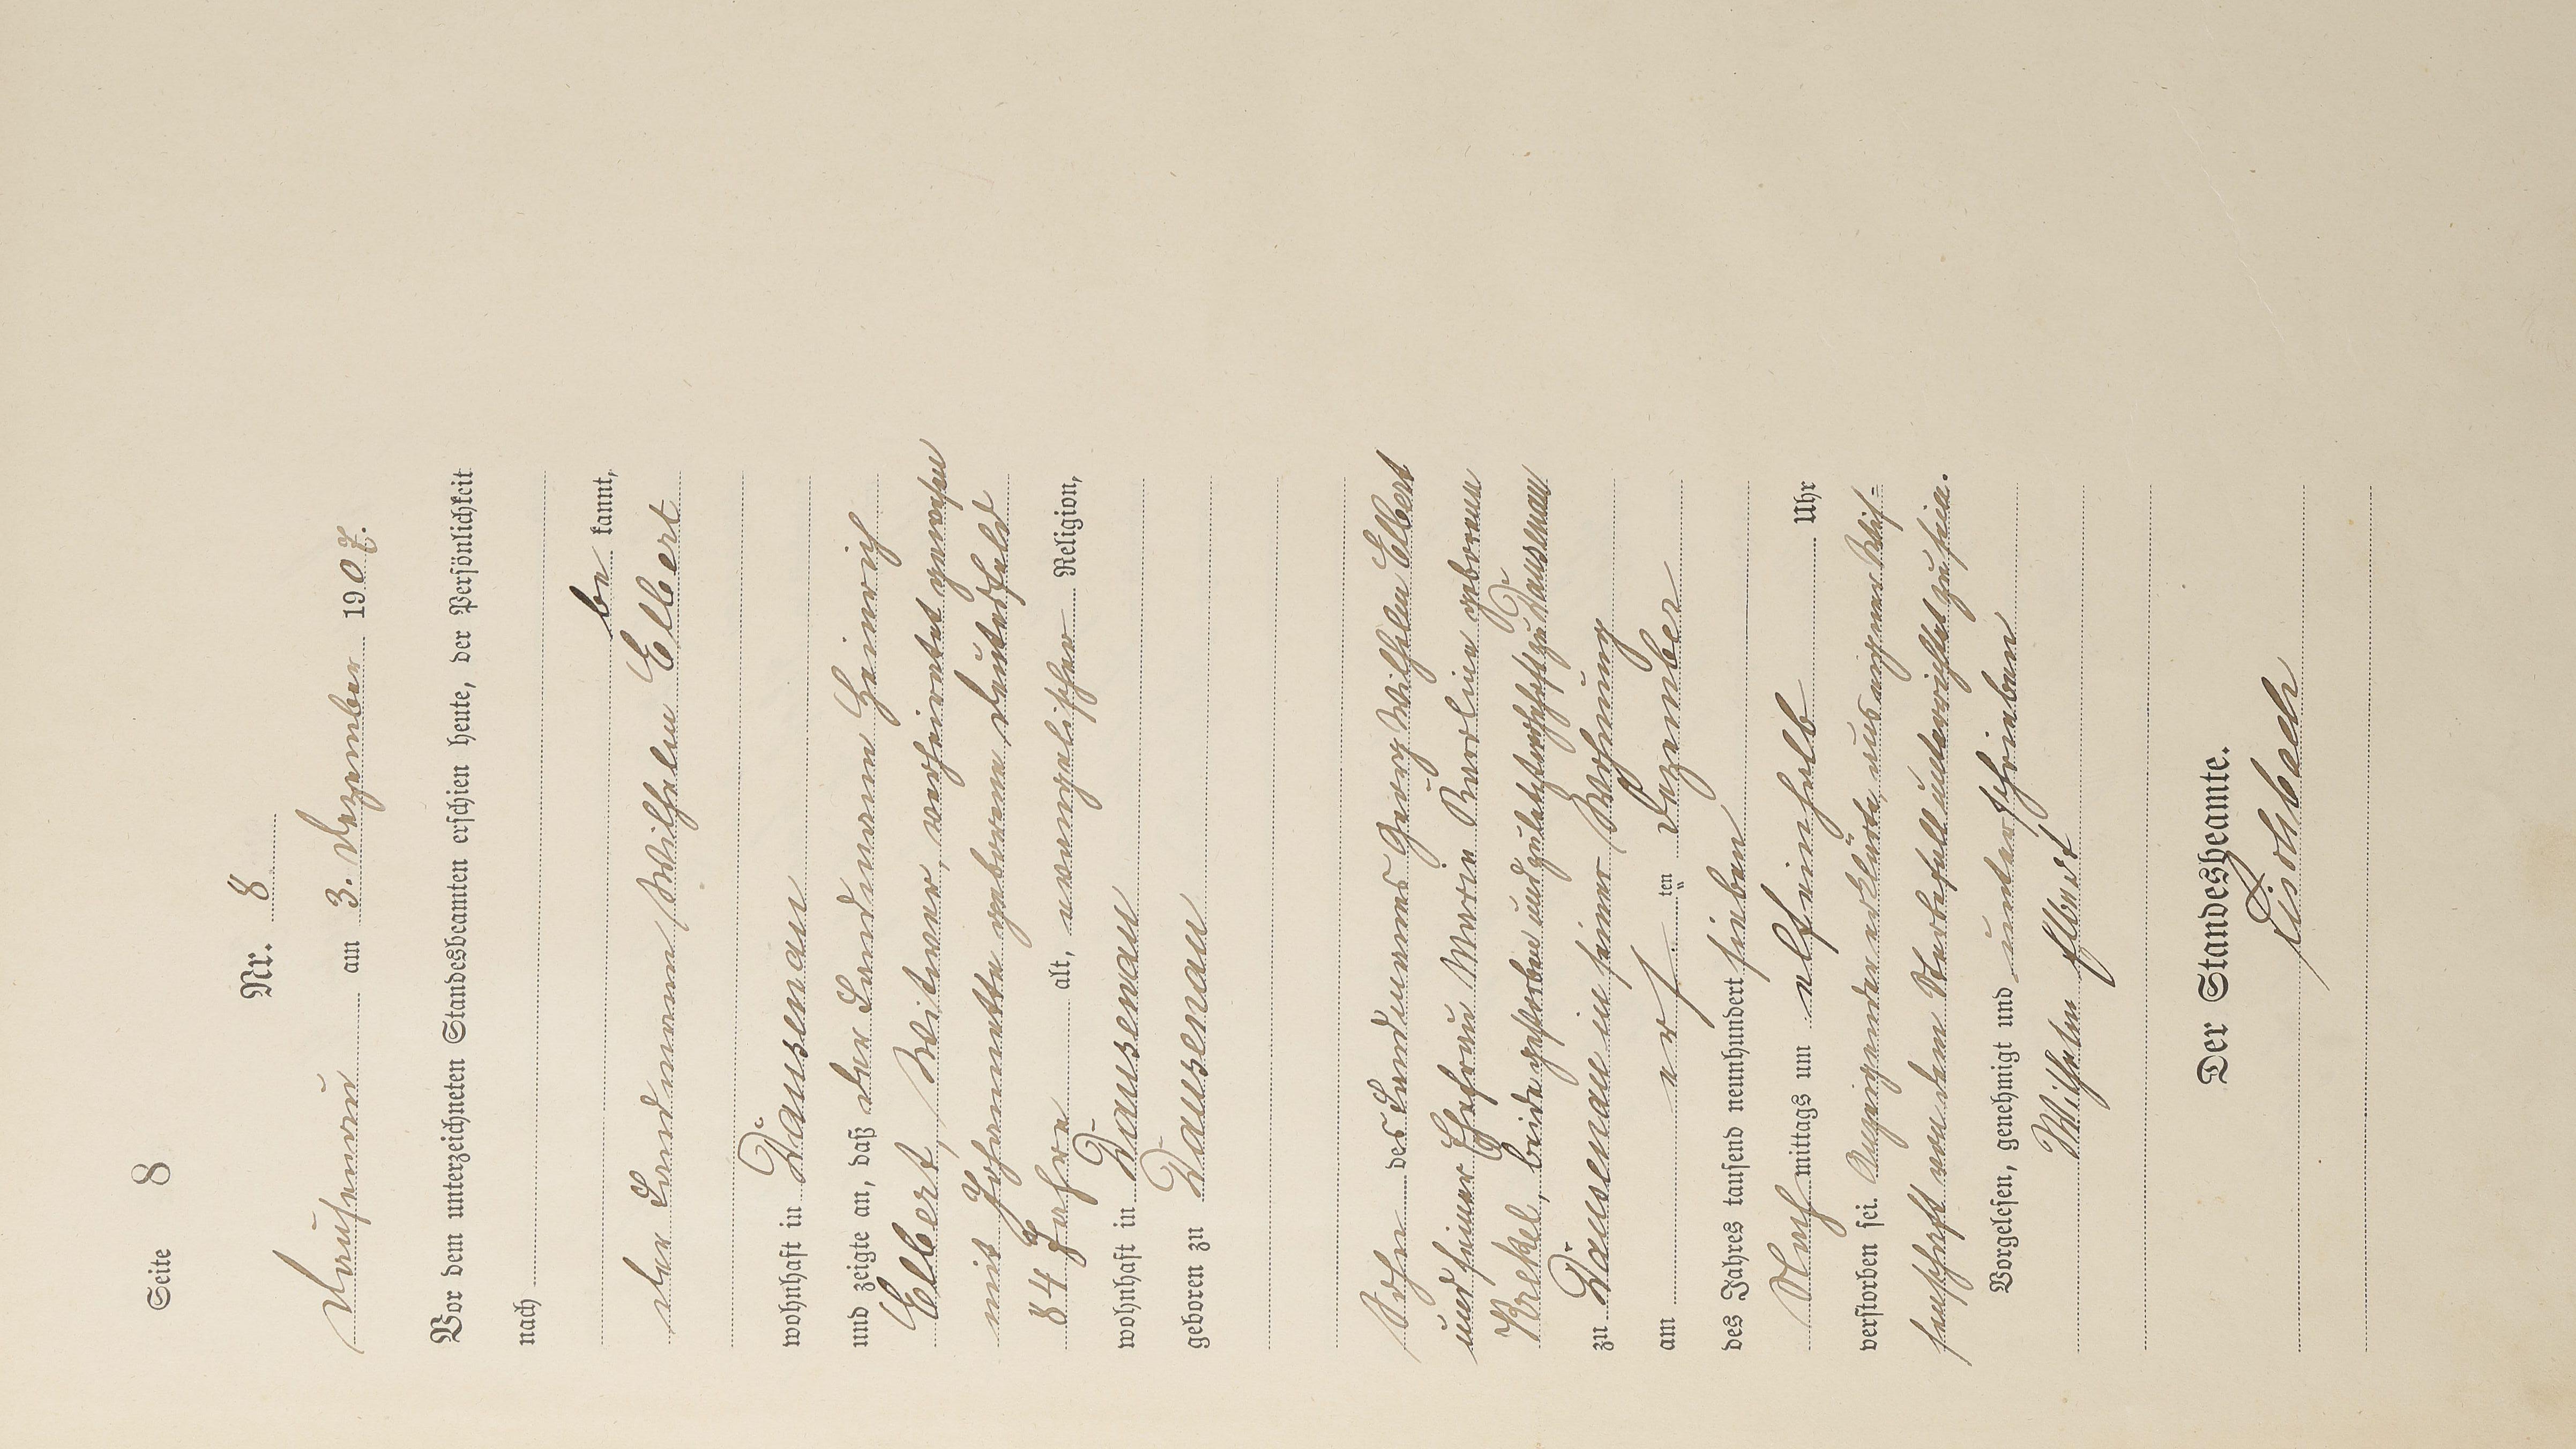 Seite 8
Nr. 8
Dausenau am 3. Dezember 1907.
Vor dem unterzeichneten Standesbeamten erschien heute, der Persönlichkeit
nach
be kannt,
der Landmann Wilhelm Elbert
wohnhaft in Dausenau
und zeigte an, daß der Landmann Heinrich
Elbert, Witwer, verheiratet gewesen
mit Johannette geborene Deutesfeld
84 Jahre alt, evangelischer Religion,
wohnhaft in Dausenau
geboren zu Dausenau
Sohn des Landmannes Georg Wilhelm Elbert
und seiner Ehefrau Maria Karline geborenen
Krekel, beide gestorben und zuletzt wohnhaft zu Dausenau
zu Dausenau in seiner Wohnung
am ersten Dezember
des Jahres tausend neunhundert sieben
Nachmittags um elfeinhalb Uhr
verstorben sei. Anzeigender erklärte, aus eigener Wis=
senschaft von dem Sterbefall unterrichtet zu sein.
Vorgelesen, genehmigt und unterschrieben
Wilhelm Elbert
Der Standesbeamte.